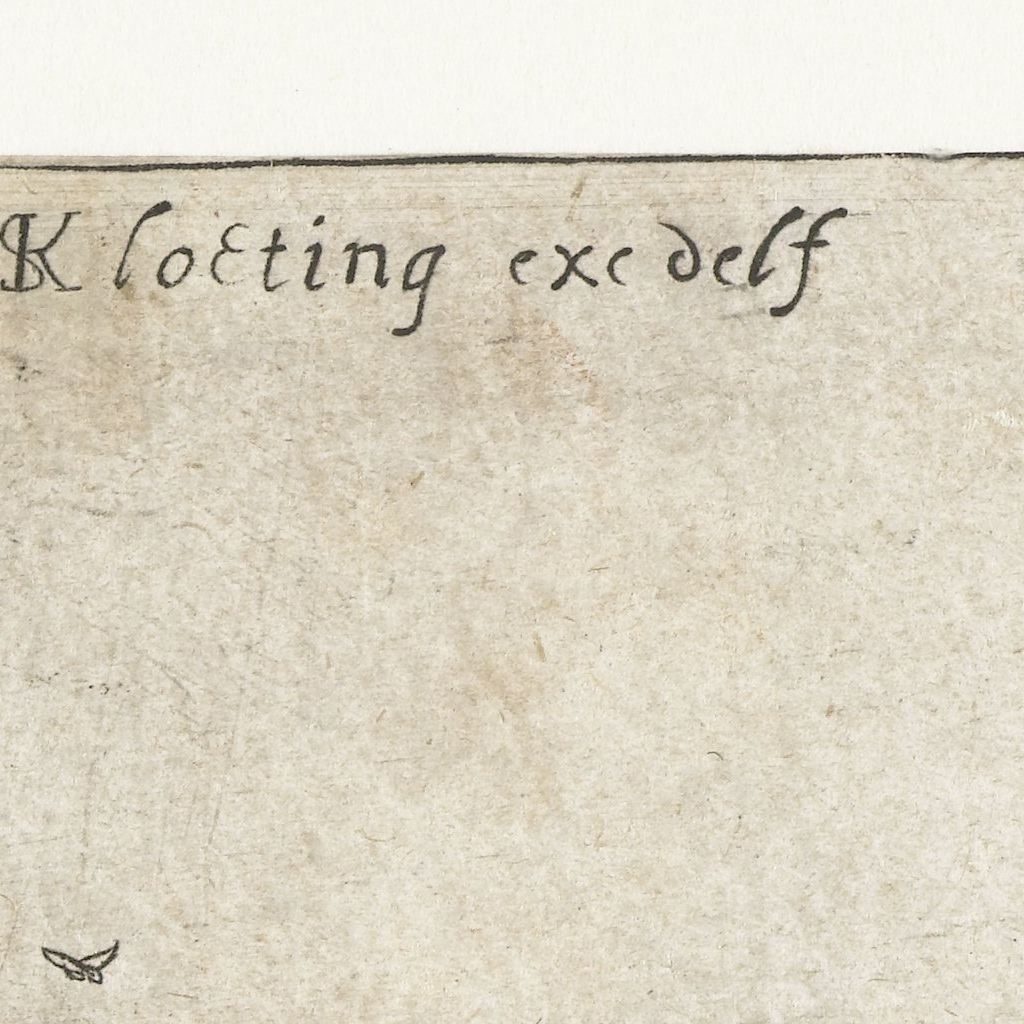 K loeting exc delf